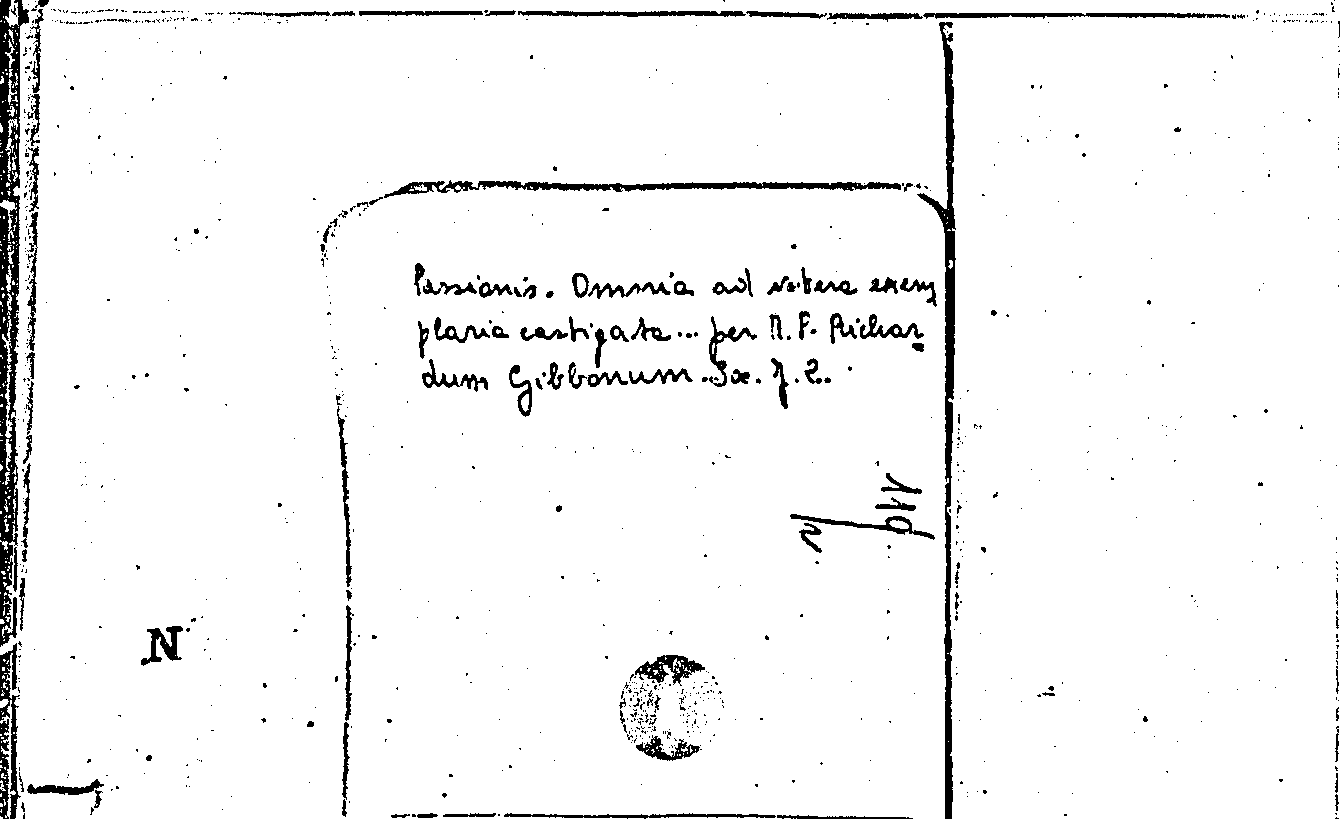 Passionis. Omnia ad vetera exem
plaria castigata... per R. P. Richar
dum Gibbonum. Soc. J. L.
N